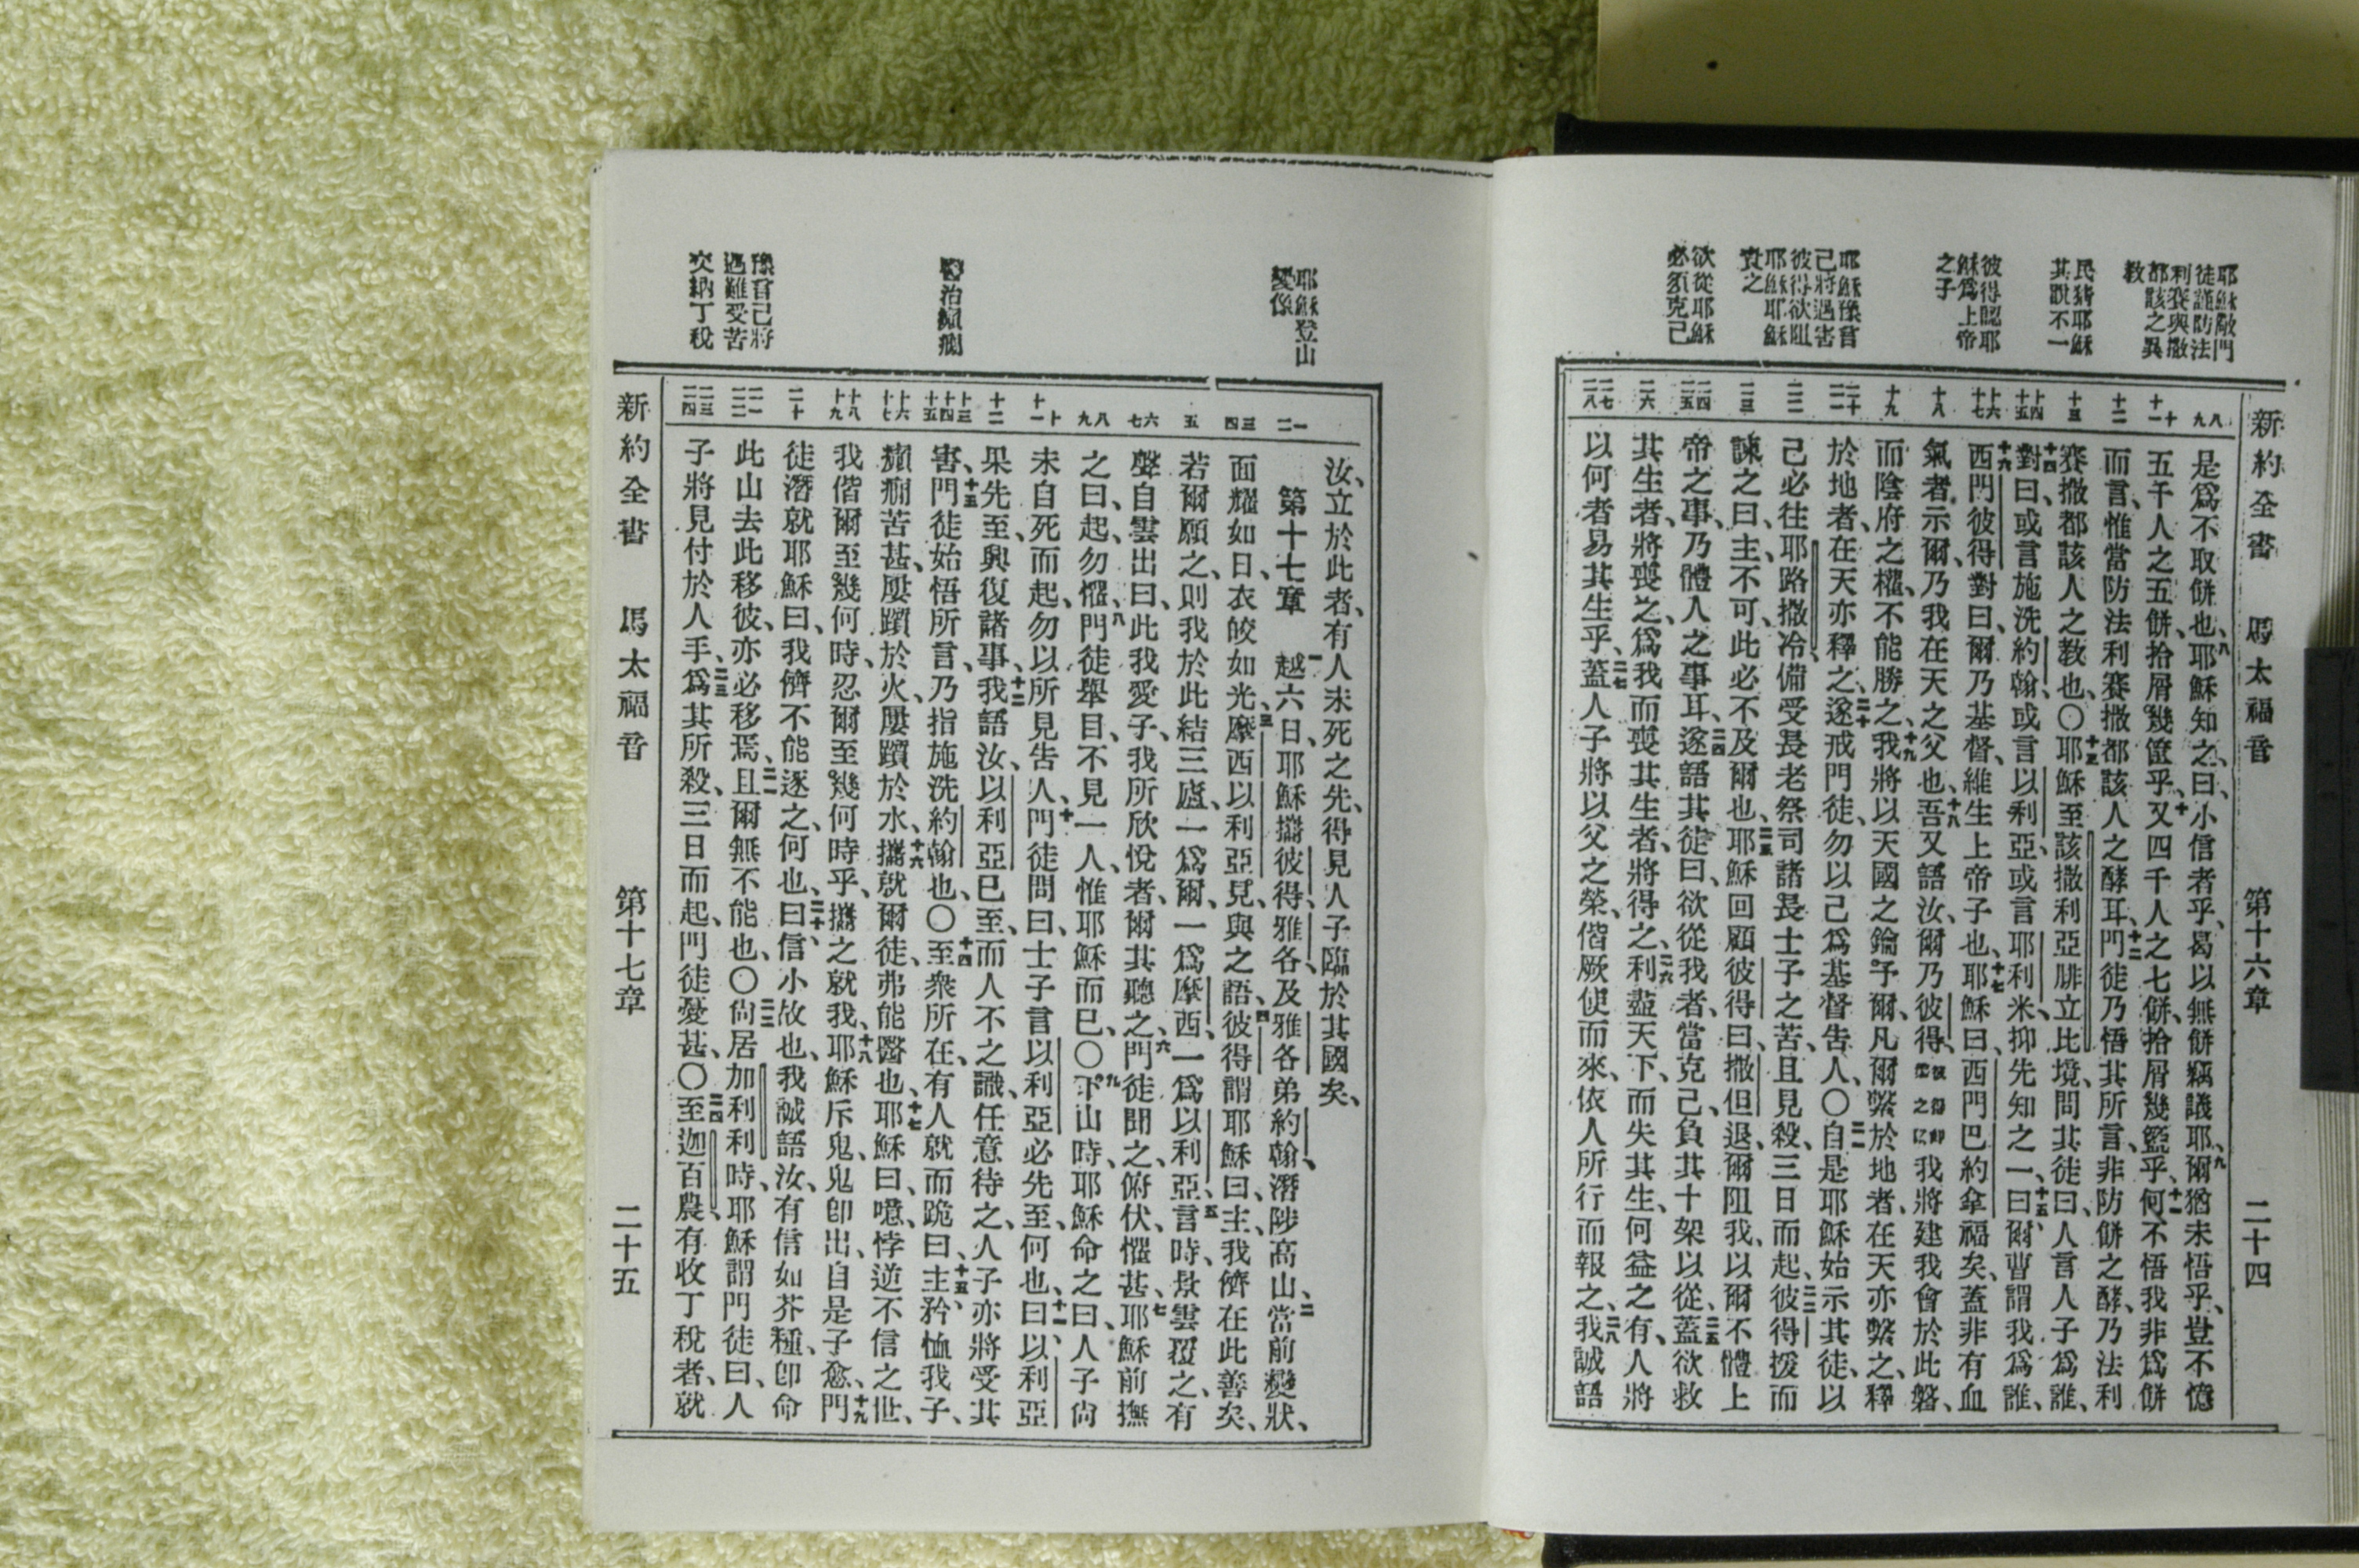 新約全書 馬太福音 第十六章 二十四
耶穌敵門
徒謹防法
利賽與撒
都該之異
教
民猜耶穌
其說不一
彼得認耶
穌爲上帝
之子
耶穌豫言
己將遇害
彼得欲阻
耶穌耶穌
責之
欲從耶穌
必須克己
八 九
十 十一
十二
十三
十四 十五
十六 十七
十八
十九
二十 二一
二二
二三
二四 二五
二六
二七 二八
是爲不取餅也、八耶穌知之、曰、小信者乎、曷以無餅竊議耶、九爾猶未悟乎、豈不憶
五千人之五餅、拾屑幾筐乎、十又四千人之七餅、拾屑幾籃乎、十一何不悟我非爲餅
而言、惟當防法利賽撒都該人之酵耳、十二門徒乃悟其所言、非防餅之酵、乃法利
賽撒都該人之教也、〇十三耶穌至該撒利亞腓立比境、問其徒曰、人言人子爲誰、
十四對曰、或言施洗約翰、或言以利亞、或言耶利米、抑先知之一、十五曰、爾曹謂我爲誰、
十六西門彼得對曰、爾乃基督、維生上帝子也、十七耶穌曰、西門巴約拿福矣、蓋非有血
氣者、示爾、乃我在天之父也、十八吾又語汝、爾乃彼得、彼得卽磐之義我將建我會於此磐、
而陰府之權、不能勝之、十九我將以天國之鑰予爾、凡爾繫於地者、在天亦繫之、釋
於地者、在天亦釋之、二十遂戒門徒、勿以己爲基督告人、〇二一自是耶穌始示其徒、以
己必往耶路撒冷、備受長老祭司諸長士子之苦、且見殺、三日而起、二二彼得援而
諫之曰、主、不可、此必不及爾也、二三耶穌回顧彼得曰、撒但、退、爾阻我、以爾不體上
帝之事、乃體人之事耳、二四遂語其徒曰、欲從我者、當克己、負其十架以從、二五蓋欲救
其生者、將喪之、爲我而喪其生者、將得之、二六利盡天下、而失其生、何益之有、人將
以何者易其生乎、二七蓋人子將以父之榮、偕厥使而來、依人所行而報之、二八我誠語
耶穌登山
變像
醫治癲癇
豫言己將
遇難受苦
次納丁稅
一 二
三 四
五
六 七
八 九
十 十一
十二
十三 十四 十五
十六 十七
十八 十九
二十
二一 二二
二三 二四
汝、立於此者、有人未死之先、得見人子臨於其國矣、
第十七章 一越六日、耶穌攜彼得、雅各、及雅各弟約翰、潛陟高山、二當前變狀、
面耀如日、衣皎如光、三摩西以利亞見、與之語、四彼得謂耶穌曰、主、我儕在此善矣、
若爾願之、則我於此結三廬、一爲爾、一爲摩西、一爲以利亞、五言時、景雲覆之、有
聲自雲出曰、此我愛子、我所欣悅者、爾其聽之、六門徒聞之、俯伏、懼甚、七耶穌前撫
之曰、起、勿懼、八門徒舉目、不見一人、惟耶穌而已、〇九下山時、耶穌命之曰、人子尙
未自死而起、勿以所見告人、十門徒問曰、士子言以利亞必先至、何也、十一曰、以利亞
果先至、興復諸事、十二我語汝、以利亞已至、而人不之識、任意待之、人子亦將受其
害、十五門徒始悟所言、乃指施洗約翰也、〇十四至衆所在、有人就而跪曰、十五主矜恤我子、
癲癇苦甚、屢躓於火、屢躓於水、十六攜就爾徒、弗能醫也、十七耶穌曰、噫、悖逆不信之世、
我偕爾至幾何時、忍爾至幾何時乎、攜之就我、十八耶穌斥鬼、鬼卽出、自是子愈、十九門
徒潛就耶穌曰、我儕不能逐之、何也、二十曰、信小故也、我誠語汝、有信如芥種、卽命
此山去此移彼、亦必移焉、二一且爾無不能也、〇二二尙居加利利時、耶穌謂門徒曰、人
子將見付於人手、二三爲其所殺、三日而起、門徒憂甚、〇二四至迦百農、有收丁稅者、就
新約全書 馬太福音 第十七章 二十五